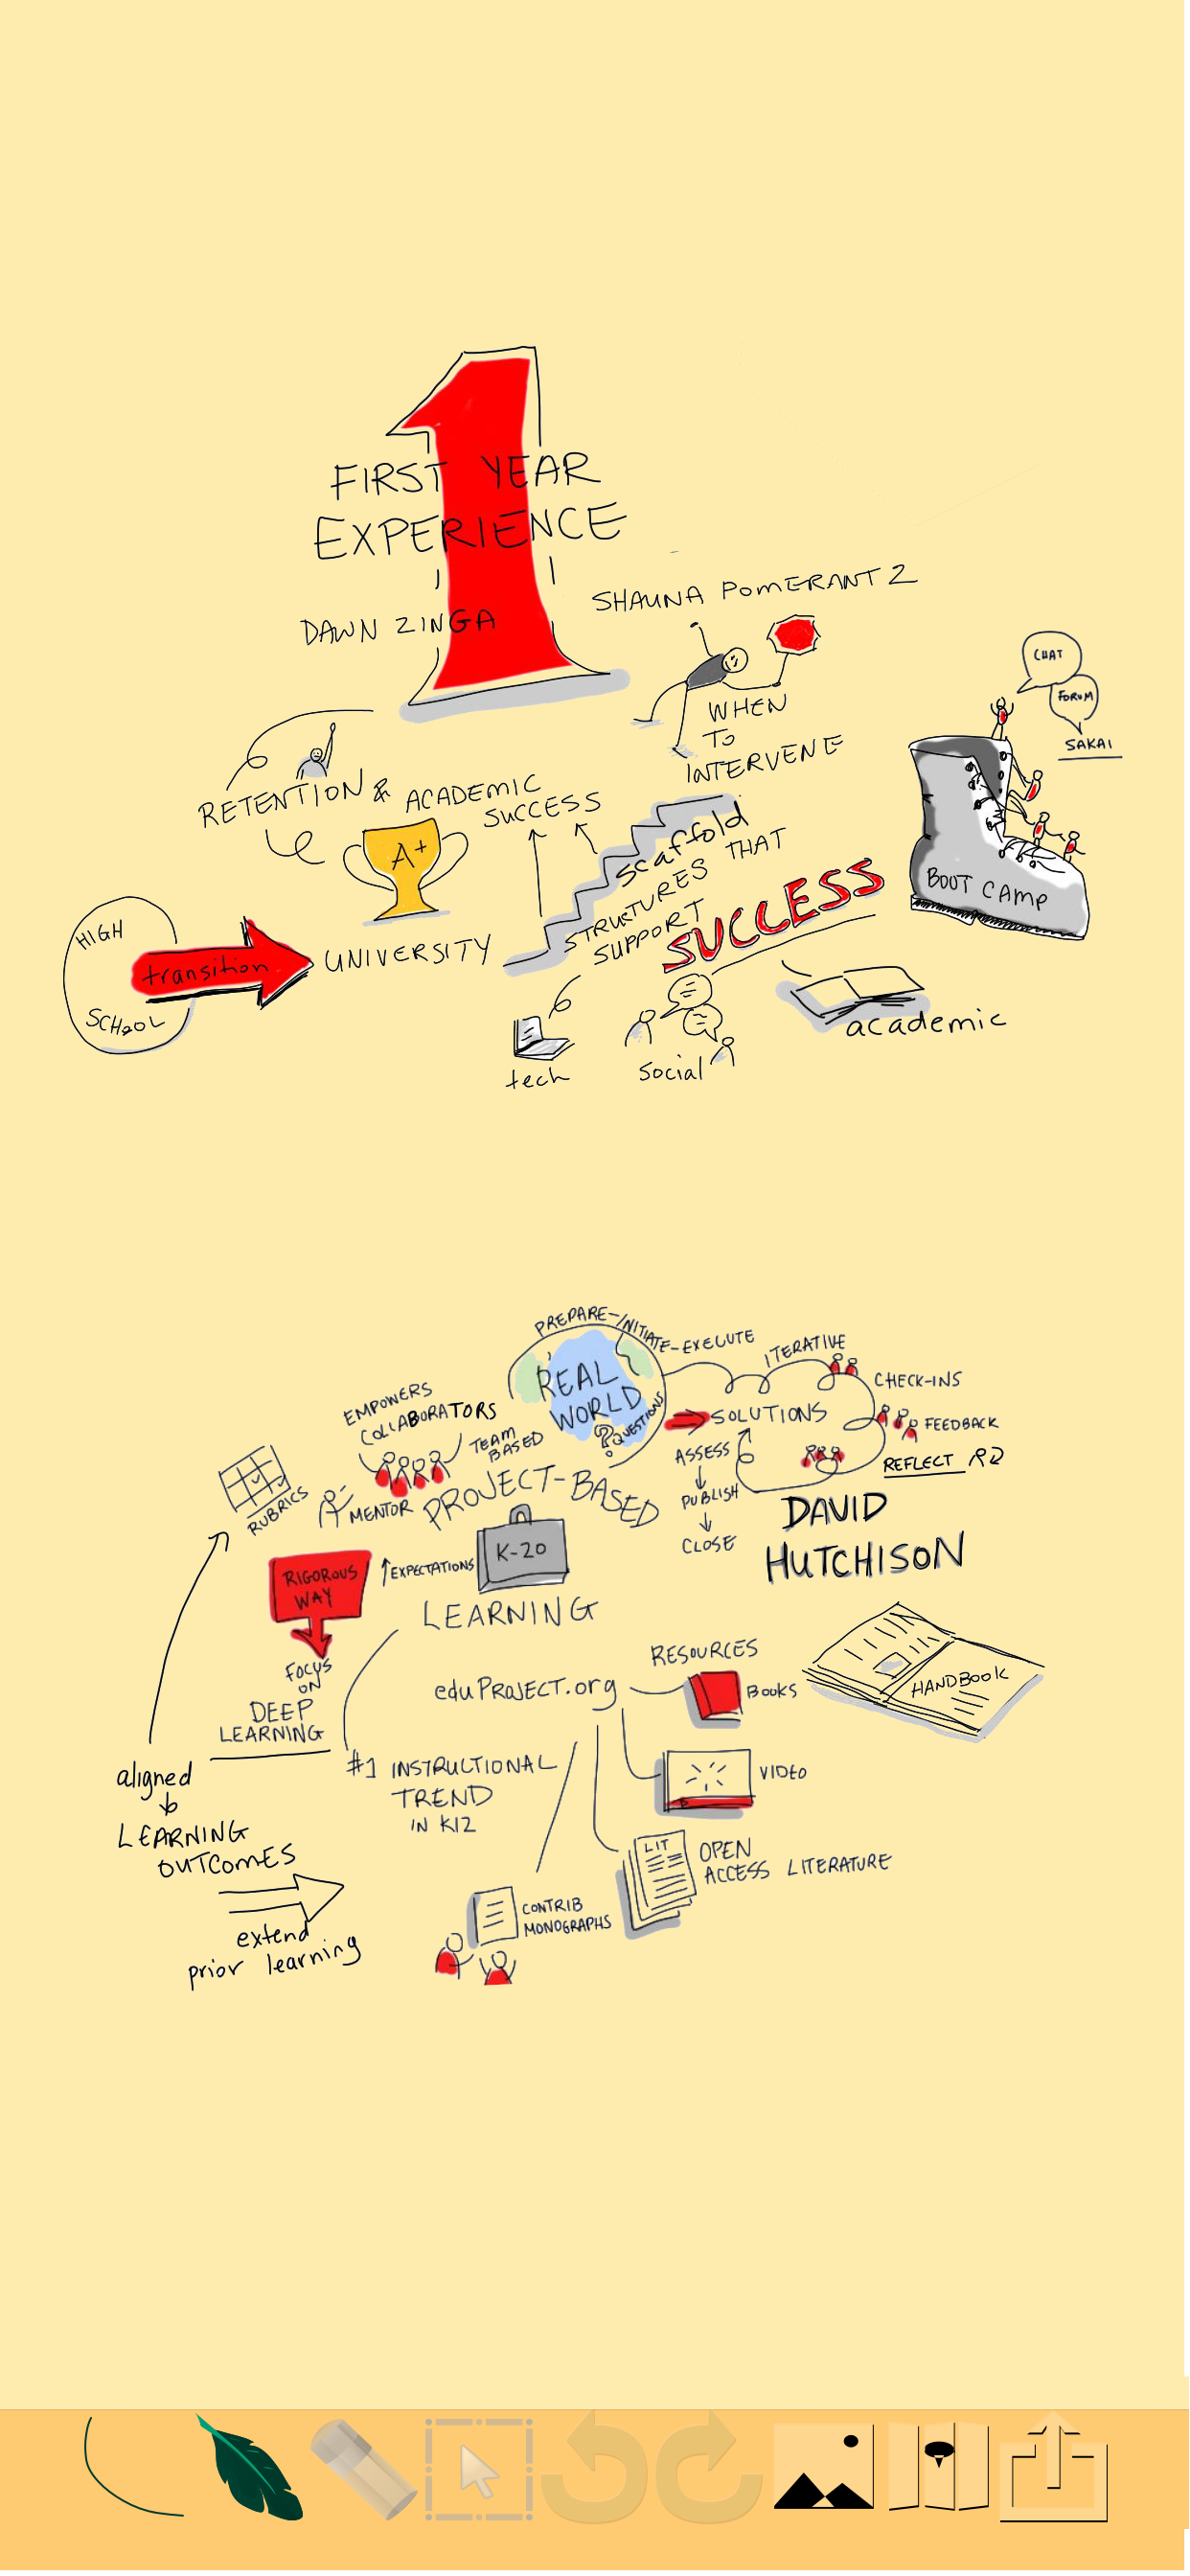 FIRST YEAR
EXPERIENCE
DAWN ZINGA
SHAUNA POMERANTZ
WHEN
TO
INTERVENE
CHAT
FORUM
SAKAI
BOOT CAMP
RETENTION & ACADEMIC
SUCCESS
A+
Scaffold
STRUCTURES THAT
SUPPORT
SUCCESS
HIGH
SCHOOL
transition
UNIVERSITY
tech
social
academic
PREPARE-INITIATE-EXECUTE
REAL
WORLD
? QUESTIONS
ITERATIVE
CHECK-INS
FEEDBACK
REFLECT
SOLUTIONS
ASSESS
PUBLISH
CLOSE
EMPOWERS
COLLABORATORS
TEAM
BASED
MENTOR
RUBRICS
PROJECT-BASED
K-20
LEARNING
EXPECTATIONS
RIGOROUS
WAY
FOCUS
ON
DEEP
LEARNING
DAVID
HUTCHISON
HANDBOOK
eduPROJECT.org
RESOURCES
BOOKS
VIDEO
LIT
OPEN
ACCESS LITERATURE
CONTRIB
MONOGRAPHS
#1 INSTRUCTIONAL
TREND
IN K12
aligned
LEARNING
OUTCOMES
extend
prior learning